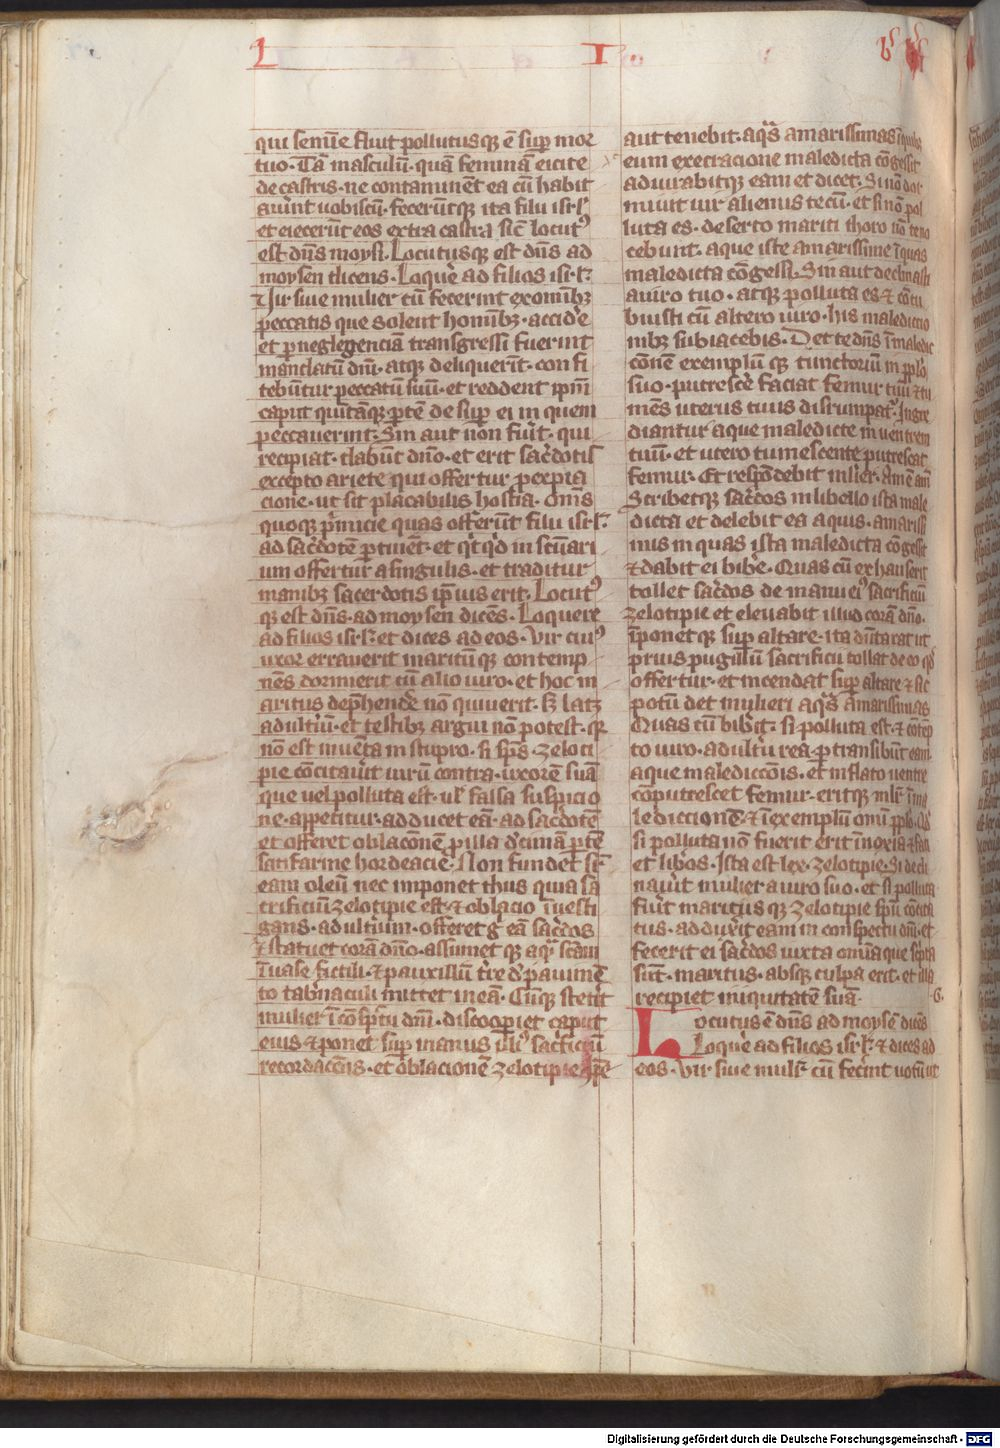 L I b
qui semīe fluit pollutusqꝫ ē suꝑ mor
tuo · Tā masculū · quā feminā eicite
de castris · ne contaminent ea cū habit
aūint uobiscū · fecerūtqꝫ ita filii isrl
et eiecerūt eos extra castra sic̄ locutꝰ
est dn̄s moysi · Locutusqꝫ est dn̄s ad
moysen dicens · Loquẹ̄ ad filios isrl ·
Uir siue mulier cū fecerint ex omībꝫ
peccatis que solent homībꝫ · accidẹ̄
et ꝑ neglegenciā transgressi fuerint
mandatum dn̄i · atqꝫ deliquerīt · con fi
tebūtur peccatum suū · et reddent ip̄m
caput quītāqꝫ ꝑtē de suꝑ ei in quem
peccauerint · Sin aut̄ non fuīt · qui
recipiat · dabūt dn̄o · et erit sac̄dotis
excepto ariete qui offertur ꝓ expia
cione · ut sit placabilis hostia · Om̄s
quoqꝫ p̄micie quas offerūt filii isrl ·
ad sac̄dotē ꝑtinēt · et qͥcqͥd in sc̄uari
um offertur a singulis · et traditur
manibꝫ sacerdotis ip̄ius erit · Locutꝰ
qꝫ est dn̄s · ad moysen dicēs · Loquere
ad filios isrl · et dices ad eos · Vir cuiꝰ
uxor errauerit maritūqꝫ contemp
nēs dormierit cū alio uiro · et hoc m
aritus dep̄hendẹ̄ nō quiuerit · sꝫ latꝫ
adultiū · et testibꝫ argui nō potest · qꝛ
nō est inuēta in stupro · si sp̄s · zeloti
pie cōcitauīt uirū contra · uxorē suā
que uel polluta est · ul̄ falsa suspicio
ne · appetitur · adducet eā · ad sac̄dotē
et offeret oblacōnē ꝓ illa dc̄imā ꝑtē
sati farine hordeacie · Non fundet sr̄
eam oleū nec imponet thus quia sa
crificiū zelotipie est · et oblacio īuesti
gans · adultīum · offeret gͦ eā sac̄dos
et statuet corā dn̄o · assumetqꝫ aqͣ sc̄am
ī uase fictili · et pauxillū tr̄e dͤ pauimē
to tab̄naculi mittet in eā · Cūqꝫ stetīt
mulier ī cōspc̄tu dn̄i · discoopiet caput
eius et ponet suꝑ manus illiꝰ sac̄ficiū
recordacōnis · et oblacionē zelotipie ip̄e
aut tenebit · aqͣs amarissimas ī quibꝫ
eum execracione maledicta cōgessit
adiurabitqꝫ eam et dicet · Si nō dor
miuit uir alienus tecū · et si nō pol
luta es · deserto mariti thoro nō teno
cebunt · aque iste amarissime ī quas
maledicta cōgessi · Sin aut declinasti
a uiro tuo · atqꝫ polluta es et cōcu
buisti cū altero uiro · his malediccio
nibꝫ subiacebis · Det te dn̄s ī maledic
cōnē exemplū qꝫ cunctoruī in ꝓplo
suo · putrescẹ̄ faciat femur tuū et tu
mēs uterus tuus disrumpat᷑ · Ingre
diantur aque maledicte in uentrem
tuū · et utero tumescente putrescat
femur · Et respōdebit mlīer · Amē amē
Scribetqꝫ sac̄dos in libello ista male
dicta et delebit ea aquis · amarissi
mis in quas ista maledicta cōgessit
et dabit ei bibẹ̄ · Quas cū exhauserit
tollet sac̄dos de manu eiꝰ sacrificiū
zelotipie et eleuabit illud corā dn̄o ·
īponetqꝫ suꝑ altare · ita dūtaxat ut
prius pugillū sacrificii tollat de eo qͦd
offertur · et incendat suꝑ altare et sic
potū det mulieri aqͣs amarissimas
Quas cū bibīt · si polluta est · et cōtēp
to uiro · adulti̇i rea · ꝑtransibūt eam
aque malediccōnis · et inflato uentre
cōputrescet femur · eritqꝫ mlr̄ ī ma
lediccionē · et ī exemplū omī ꝓplo · Qͦd
si polluta nō fuerit erit īnoxia et faci
et liƀos · Ista est lex · zelotipie · Si decli
nauīt mulier a uiro suo · et si polluta
fuīt maritusqꝫ zelotipie sp̄u cōcita
tus · adduxīt eam in conspectu dn̄i · et
fecerit ei sac̄dos iuxta omīa que sc̄pta
sūt · maritus · absqꝫ culpa erit · et illa
recipiet iniquitatē suā ·
6 ·
Locutus ē dn̄s ad moysē dicēs
Loquẹ̄ ad filios isrl · et dices ad
eos · Vir · siue mulr̄ cū fec̄int uotū ut
Digitalisierung gefördert durch die Deutsche Forschungsgemeinschaft - DFG